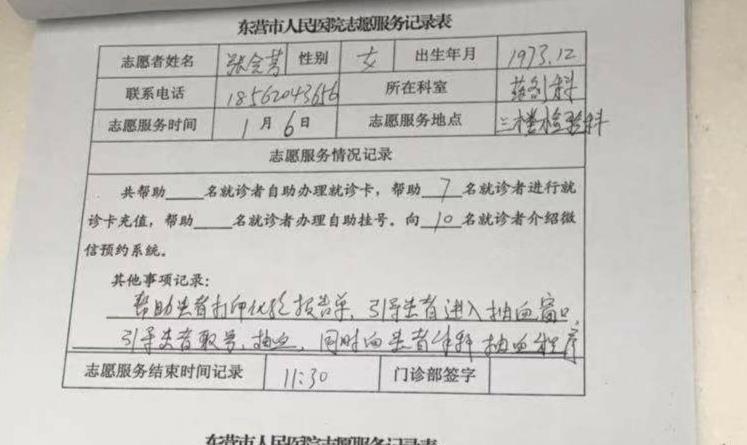 东营市人民医院志愿服务记录表
志愿者姓名 张会芳 性别 女 出生年月 1973.12
联系电话 18562043656 所在科室 药剂科
志愿服务时间 1月6日 志愿服务地点 三楼检验科
志愿服务情况记录
共帮助____名就诊者自助办理就诊卡，帮助 7 名就诊者进行就
诊卡充值，帮助____名就诊者办理自助挂号。向 10 名就诊者介绍微
信预约系统。
其他事项记录：
帮助患者打印化验报告单，引导患者进入抽血窗口，
引导患者取号，抽血，同时向患者解释抽血程序
志愿服务结束时间记录 11:30 门诊部签字
东营市人民医院志愿服务记录表